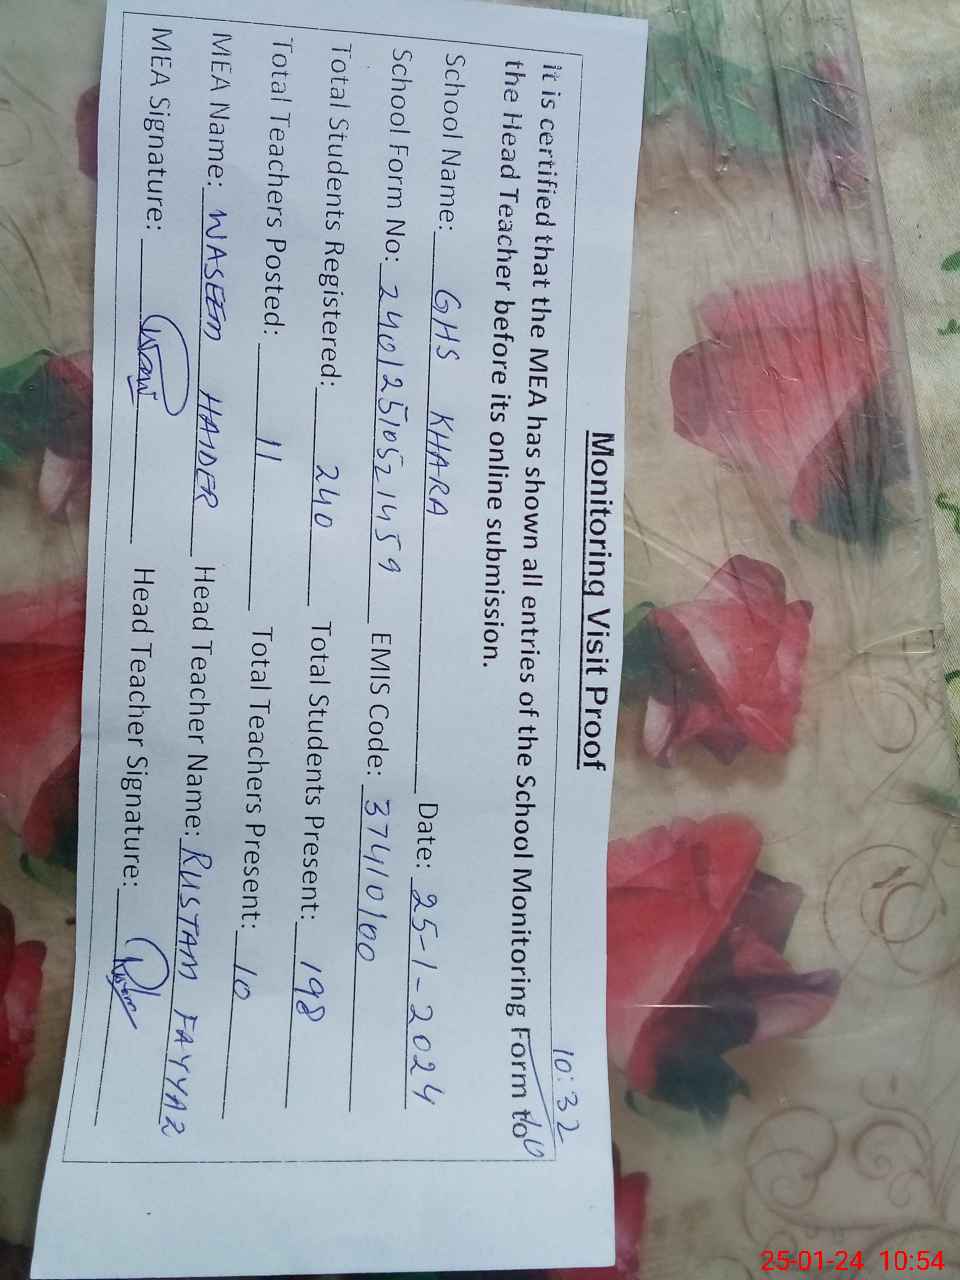 10:32
Monitoring Visit Proof
it is certified that the MEA has shown all entries of the School Monitoring Form to
the Head Teacher before its online submission.
School Name: GHS KHARA Date: 25-1-2024
School Form No: 24012510521459 EMIS Code: 37410100
Total Students Registered: 240 Total Students Present: 198
Total Teachers Posted: 11 Total Teachers Present: 10
MEA Name: WASEEM HAIDER Head Teacher Name: RUSTAM FAYYAZ
MEA Signature: Head Teacher Signature:
25-01-24 10:54